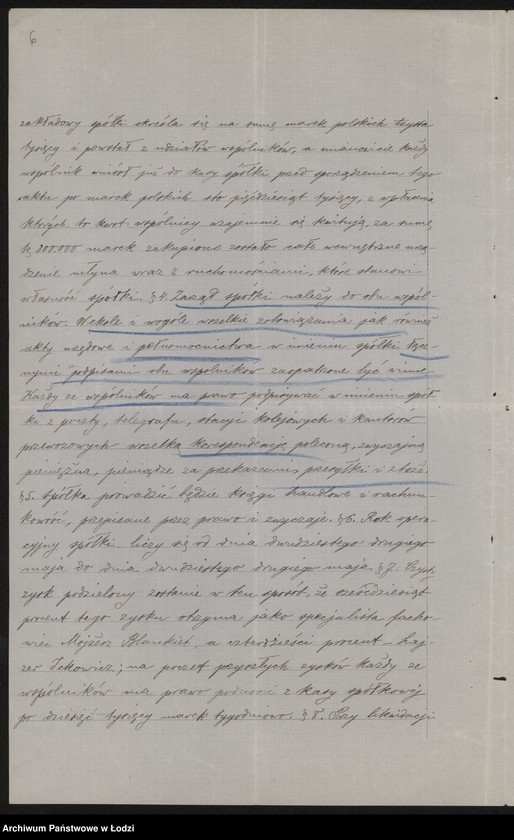 6
zakładowy spółki określa się na sumę marek polskich trzysta
tysięcy i powstał z udziałów wspólników, a mianowicie każdy
wspólnik wniósł już do kasy spółki przed sporządzeniem tego
aktu po marek polskich sto pięćdziesiąt tysięcy, z wpłacenia
których to kwot wspólnicy wzajemnie się kwitują, za sumę
tę 300.000 marek zakupione zostało całe wewnętrzne urzą-
dzenie młyna wraz z ruchomościami, które stanowi
własność spółki. § 4. Zarząd spółki należy do obu wspól-
ników. Weksle i wogóle wszelkie zobowiązania jak również
akty urzędowe i pełnomocnictwa w imieniu spółki łącz-
nymi podpisami obu wspólników zaopatrzone być winne.
Każdy ze wspólników ma prawo podpisywać w imieniu spół-
ki z poczty, telegrafu, stacyi kolejowych i kantorów
przewozowych wszelką korespondencję poleconą, zwyczajną
pieniężną, pieniądze za przekazami, przesyłki i zboże.
§ 5. Spółka prowadzić będzie księgi handlowe i rachun-
kowość, przepisane przez prawo i zwyczaje. § 6. Rok opera-
cyjny spółki liczy się od dnia dwudziestego drugiego
maja do dnia dwudziestego drugiego maja. § 7. Czysty
zysk podzielony zostanie w ten sposób, że sześćdziesiąt
procent tego zysku otrzyma jako specjalista facho-
wiec Mojżesz Blankiet, a czterdzieści procent Laj-
zer Ickowicz; na poczet przyszłych zysków każdy ze
wspólników ma prawo podnosić z kasy spółkowej
po dziesięć tysięcy marek tygodniowo. § 8. Przy likwidacji
Archiwum Państwowe w Łodzi